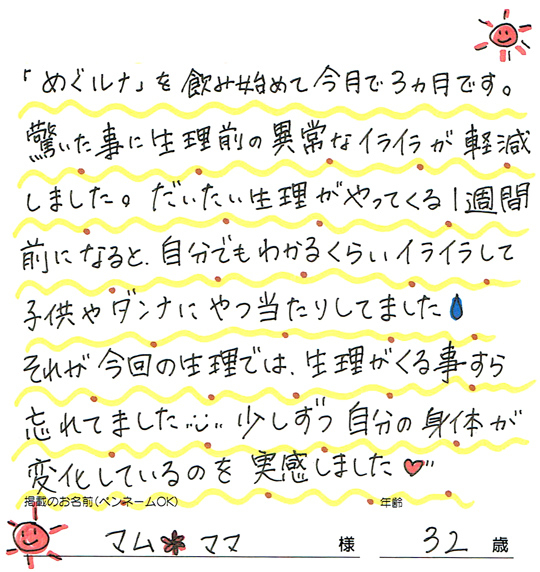 「めぐルナ」を飲み始めて今月で3ヵ月です。
驚いた事に生理前の異常なイライラが軽減
しました。だいたい生理がやってくる1週間
前になると、自分でもわかるくらいイライラして
子供やダンナにやつ当たりしてました
それが今回の生理では、生理がくる事すら
忘れてました 少しずつ自分の身体が
変化しているのを実感しました♡
掲載のお名前(ペンネームOK) 年齢
マム ママ 様 32 歳